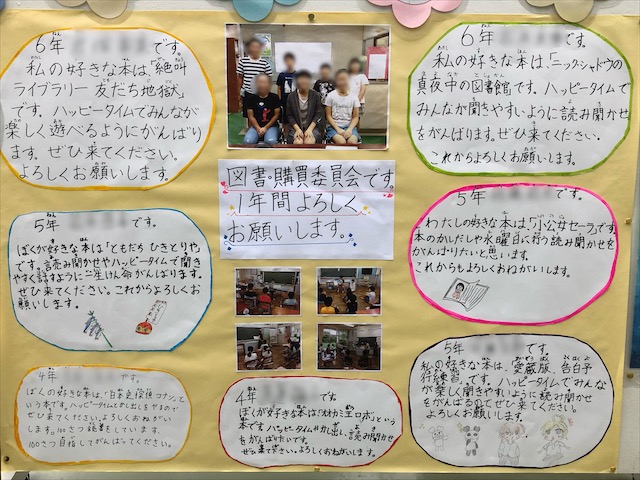 6年 です。
私の好きな本は、「絶叫
ライブラリー 友だち地獄」
です。ハッピータイムでみんなが
楽しく遊べるようにがんばり
ます。ぜひ来てください。
よろしくお願いします。
6年 です。
私の好きな本は、「ニックシャドウの
真夜中の図書館」です。ハッピータイムで
みんなが聞きやすいように読み聞かせ
をがんばります。ぜひ来てください。
これからよろしくお願いします。
図書・購買委員会です。
1年間よろしく
お願いします。
5年 です。
ぼくが好きな本は「ともだち ひきとりや」
です。読み聞かせやハッピータイムで聞き
やすく話すように一生けん命がんばります。
ぜひ来てください。これからよろしくお
願いします。
5年 です。
わたしの好きな本は、「小公女セーラ」です。
本のかしだしや水曜日に行う読み聞かせを
がんばりたいと思います。
これからもよろしくおねがいします。
4年 です。
ぼくの好きな本は、「日本史探偵コナン」と
いう本です。ハッピータイムとかし出しをやるので
ぜひ来てください。よろしくおねがい
します。100さつ読書をしています。
100さつ目指してがんばってください。
4年 です。
ぼくが好きな本は「オオカミ王ロボ」という
本です。ハッピータイムやかし出し、読み聞かせ
をがんばりたいです。
ぜひ来て下さい。よろしくおねがいします。
5年 です。
私の好きな本は、「愛蔵版、告白予
行練習」です。ハッピータイムでみんな
が楽しく聞きやすいように読み聞かせ
をがんばるのでぜひ来てください。
よろしくお願いします。